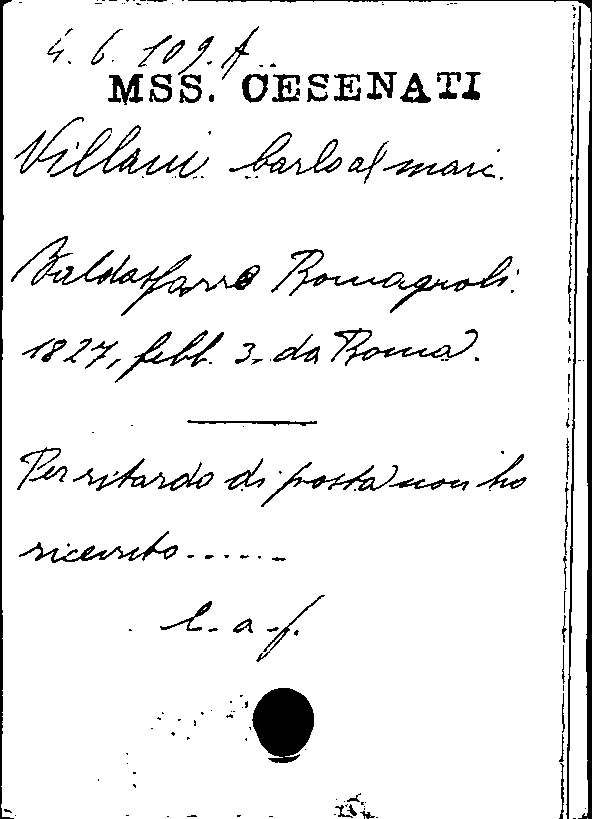 4. 6. 109. A.
MSS. CESENATI
Villani Carlo al marc.
Baldassarre Romagnoli.
1827, febb. 3. da Roma.
Per ritardo di posta non ho
ricevuto......
L. a. f.